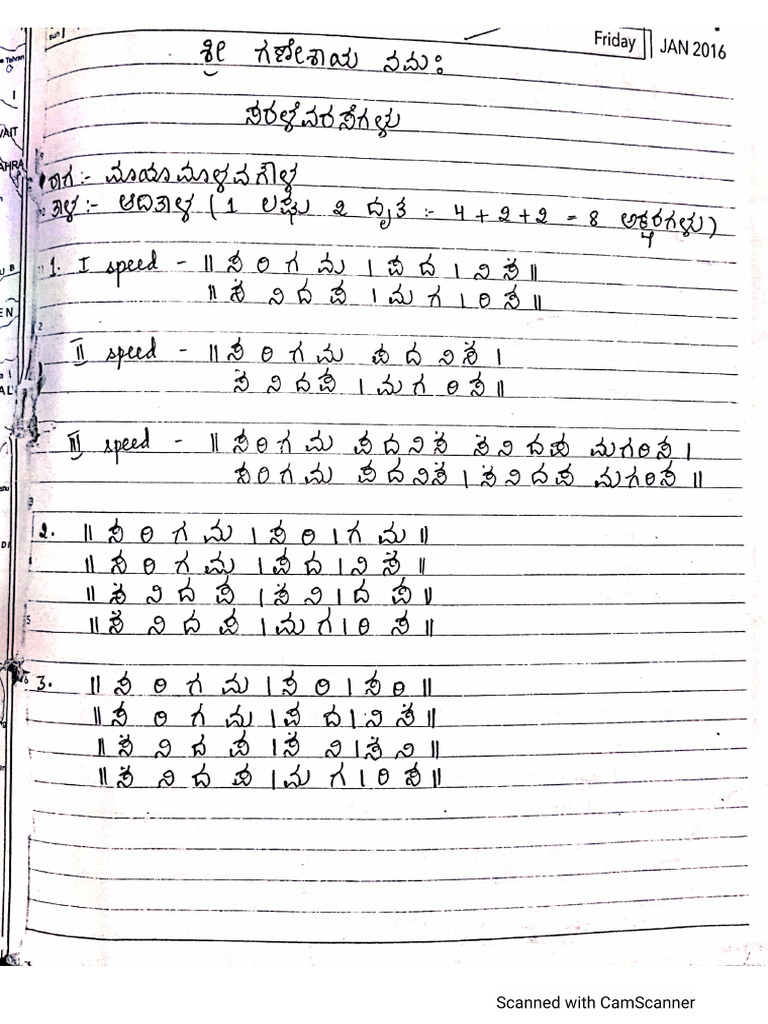 Friday JAN 2016
ಶ್ರೀ ಗಣೇಶಾಯ ನಮಃ
ಸರಳೆವರಸೆಗಳು
ರಾಗ :- ಮಾಯಾಮಾಳವಗೌಳ
ತಾಳ :- ಆದಿತಾಳ ( 1 ಲಘು 2 ದೃತ :- 4 + 2 + 2 = 8 ಅಕ್ಷರಗಳು )
1. I speed - || ಸ ರಿ ಗ ಮ | ಪ ದ | ನಿ ಸ̇ ||
|| ಸ̇ ನಿ ದ ಪ | ಮ ಗ | ರಿ ಸ ||
II speed - || ಸ ರಿ ಗ ಮ ಪ ದ ನಿ ಸ̇ |
ಸ̇ ನಿ ದ ಪ | ಮ ಗ ರಿ ಸ ||
III speed - || ಸರಿಗಮ ಪದನಿಸ̇ ಸ̇ನಿದಪ ಮಗರಿಸ |
ಸರಿಗಮ ಪದನಿಸ̇ | ಸ̇ನಿದಪ ಮಗರಿಸ ||
2. || ಸ ರಿ ಗ ಮ | ಸ ರಿ | ಗ ಮ ||
|| ಸ ರಿ ಗ ಮ | ಪ ದ | ನಿ ಸ̇ ||
|| ಸ̇ ನಿ ದ ಪ | ಸ̇ ನಿ | ದ ಪ ||
|| ಸ̇ ನಿ ದ ಪ | ಮ ಗ | ರಿ ಸ ||
3. || ಸ ರಿ ಗ ಮ | ಸ ರಿ | ಸ ರಿ ||
|| ಸ ರಿ ಗ ಮ | ಪ ದ | ನಿ ಸ̇ ||
|| ಸ̇ ನಿ ದ ಪ | ಸ̇ ನಿ | ಸ̇ ನಿ ||
|| ಸ̇ ನಿ ದ ಪ | ಮ ಗ | ರಿ ಸ ||
Scanned with CamScanner